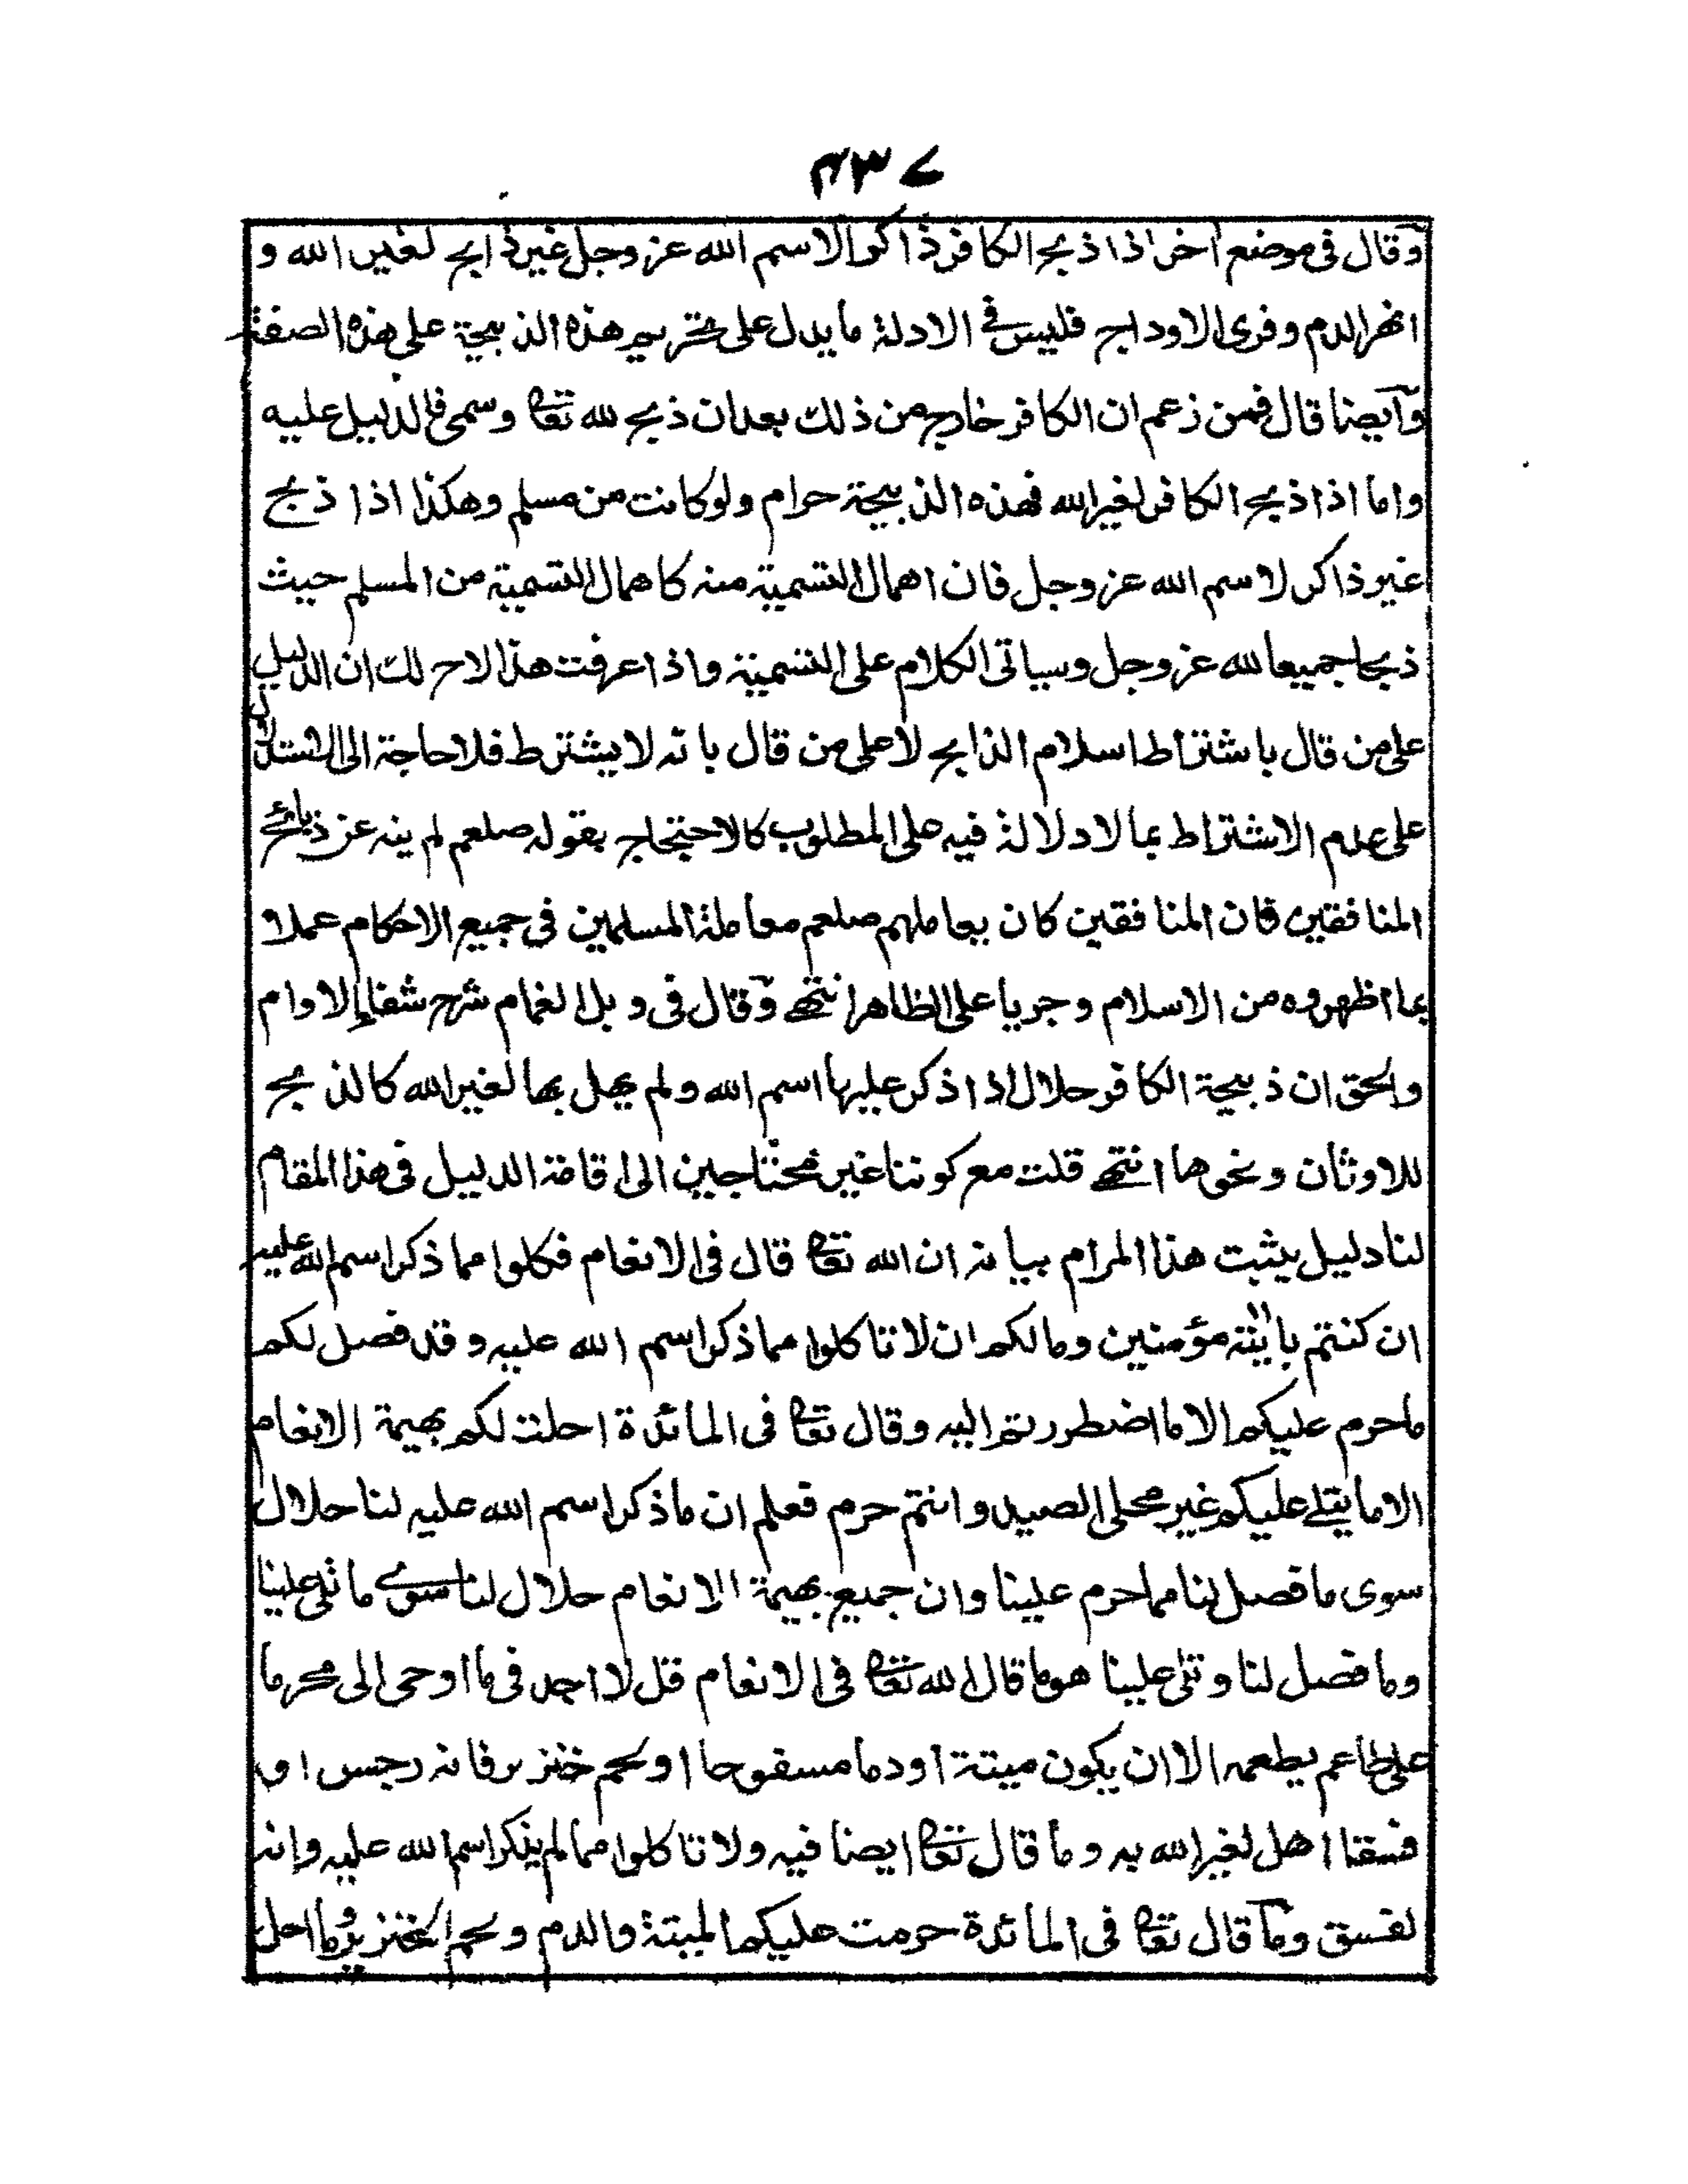 ۴۳۷
وقال فى موضع اخر اذا ذبح الكافر ذاكرا لاسم الله عز وجل غير ذابح لغير الله و
انهر الدم وفرى الاوداج فليس فى الادلة ما يدل على تحريم هذه الذبيحة على هذه الصفة
وايضا قال فمن زعم ان الكافر خارج من ذلك بعد ان ذبح لله تعالى وسمى فالدليل عليه
واما اذا ذبح الكافر لغير الله فهذه الذبيحة حرام ولو كانت من مسلم وهكذا اذا ذبح
غير ذاكر لاسم الله عز وجل فان اهمال التسمية منه كاهمال التسمية من المسلم حيث
ذبحا جميعا لله عز وجل وسياتى الكلام على التسمية واذا عرفت هذا لاح لك ان الدليل
على من قال باشتراط اسلام الذابح لا على من قال بانه لا يشترط فلا حاجة الى الاستدلال
على عدم الاشتراط بما لا دلالة فيه على المطلوب كالاحتجاج بقوله صلعم لم ينه عن ذبائح
المنافقين فان المنافقين كان يعاملهم صلعم معاملة المسلمين فى جميع الاحكام عملا
بما اظهروه من الاسلام وجريا على الظاهر انتهى وقال فى وبل الغمام شرح شفاء الاوام
والحق ان ذبيحة الكافر حلال اذا ذكر عليها اسم الله ولم يهل بها لغير الله كالذبح
للاوثان ونحوها انتهى قلت مع كوننا غير محتاجين الى اقامة الدليل فى هذا المقام
لنا دليل يثبت هذا المرام بيانه ان الله تعالى قال فى الانعام فكلوا مما ذكر اسم الله عليه
ان كنتم باٰيٰته مؤمنين وما لكم ان لا تاكلوا مما ذكر اسم الله عليه وقد فصل لكم
ما حرم عليكم الا ما اضطررتم اليه وقال تعالى فى المائدة احلت لكم بهيمة الانعام
الا ما يتلے عليكم غير محلى الصيد وانتم حرم فعلم ان ما ذكر اسم الله عليه لنا حلال
سوى ما فصل لنا مما حرم علينا وان جميع بهيمة الانعام حلال لنا سوے ما تلى علينا
وما فصل لنا وتلى علينا هو ما قال الله تعالى فى الانعام قل لا اجد فى ما اوحى الى محرما
على طاعم يطعمه الا ان يكون ميتة او دما مسفوحا او لحم خنزير فانه رجس او
فسقا اهل لغير الله به وما قال تعالى ايضا فيه ولا تاكلوا مما لم يذكر اسم الله عليه وانه
لفسق وما قال تعالى فى المائدة حرمت عليكم الميتة والدم ولحم الخنزير وما اهل